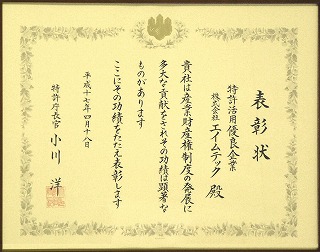 表彰状
特許活用優良企業
株式会社 エイムテック 殿
貴社は産業財産権制度の発展に
多大な貢献をされその功績は顕著な
ものがあります
ここにその功績をたたえ表彰します
平成十七年四月十八日
特許庁長官 小川 洋